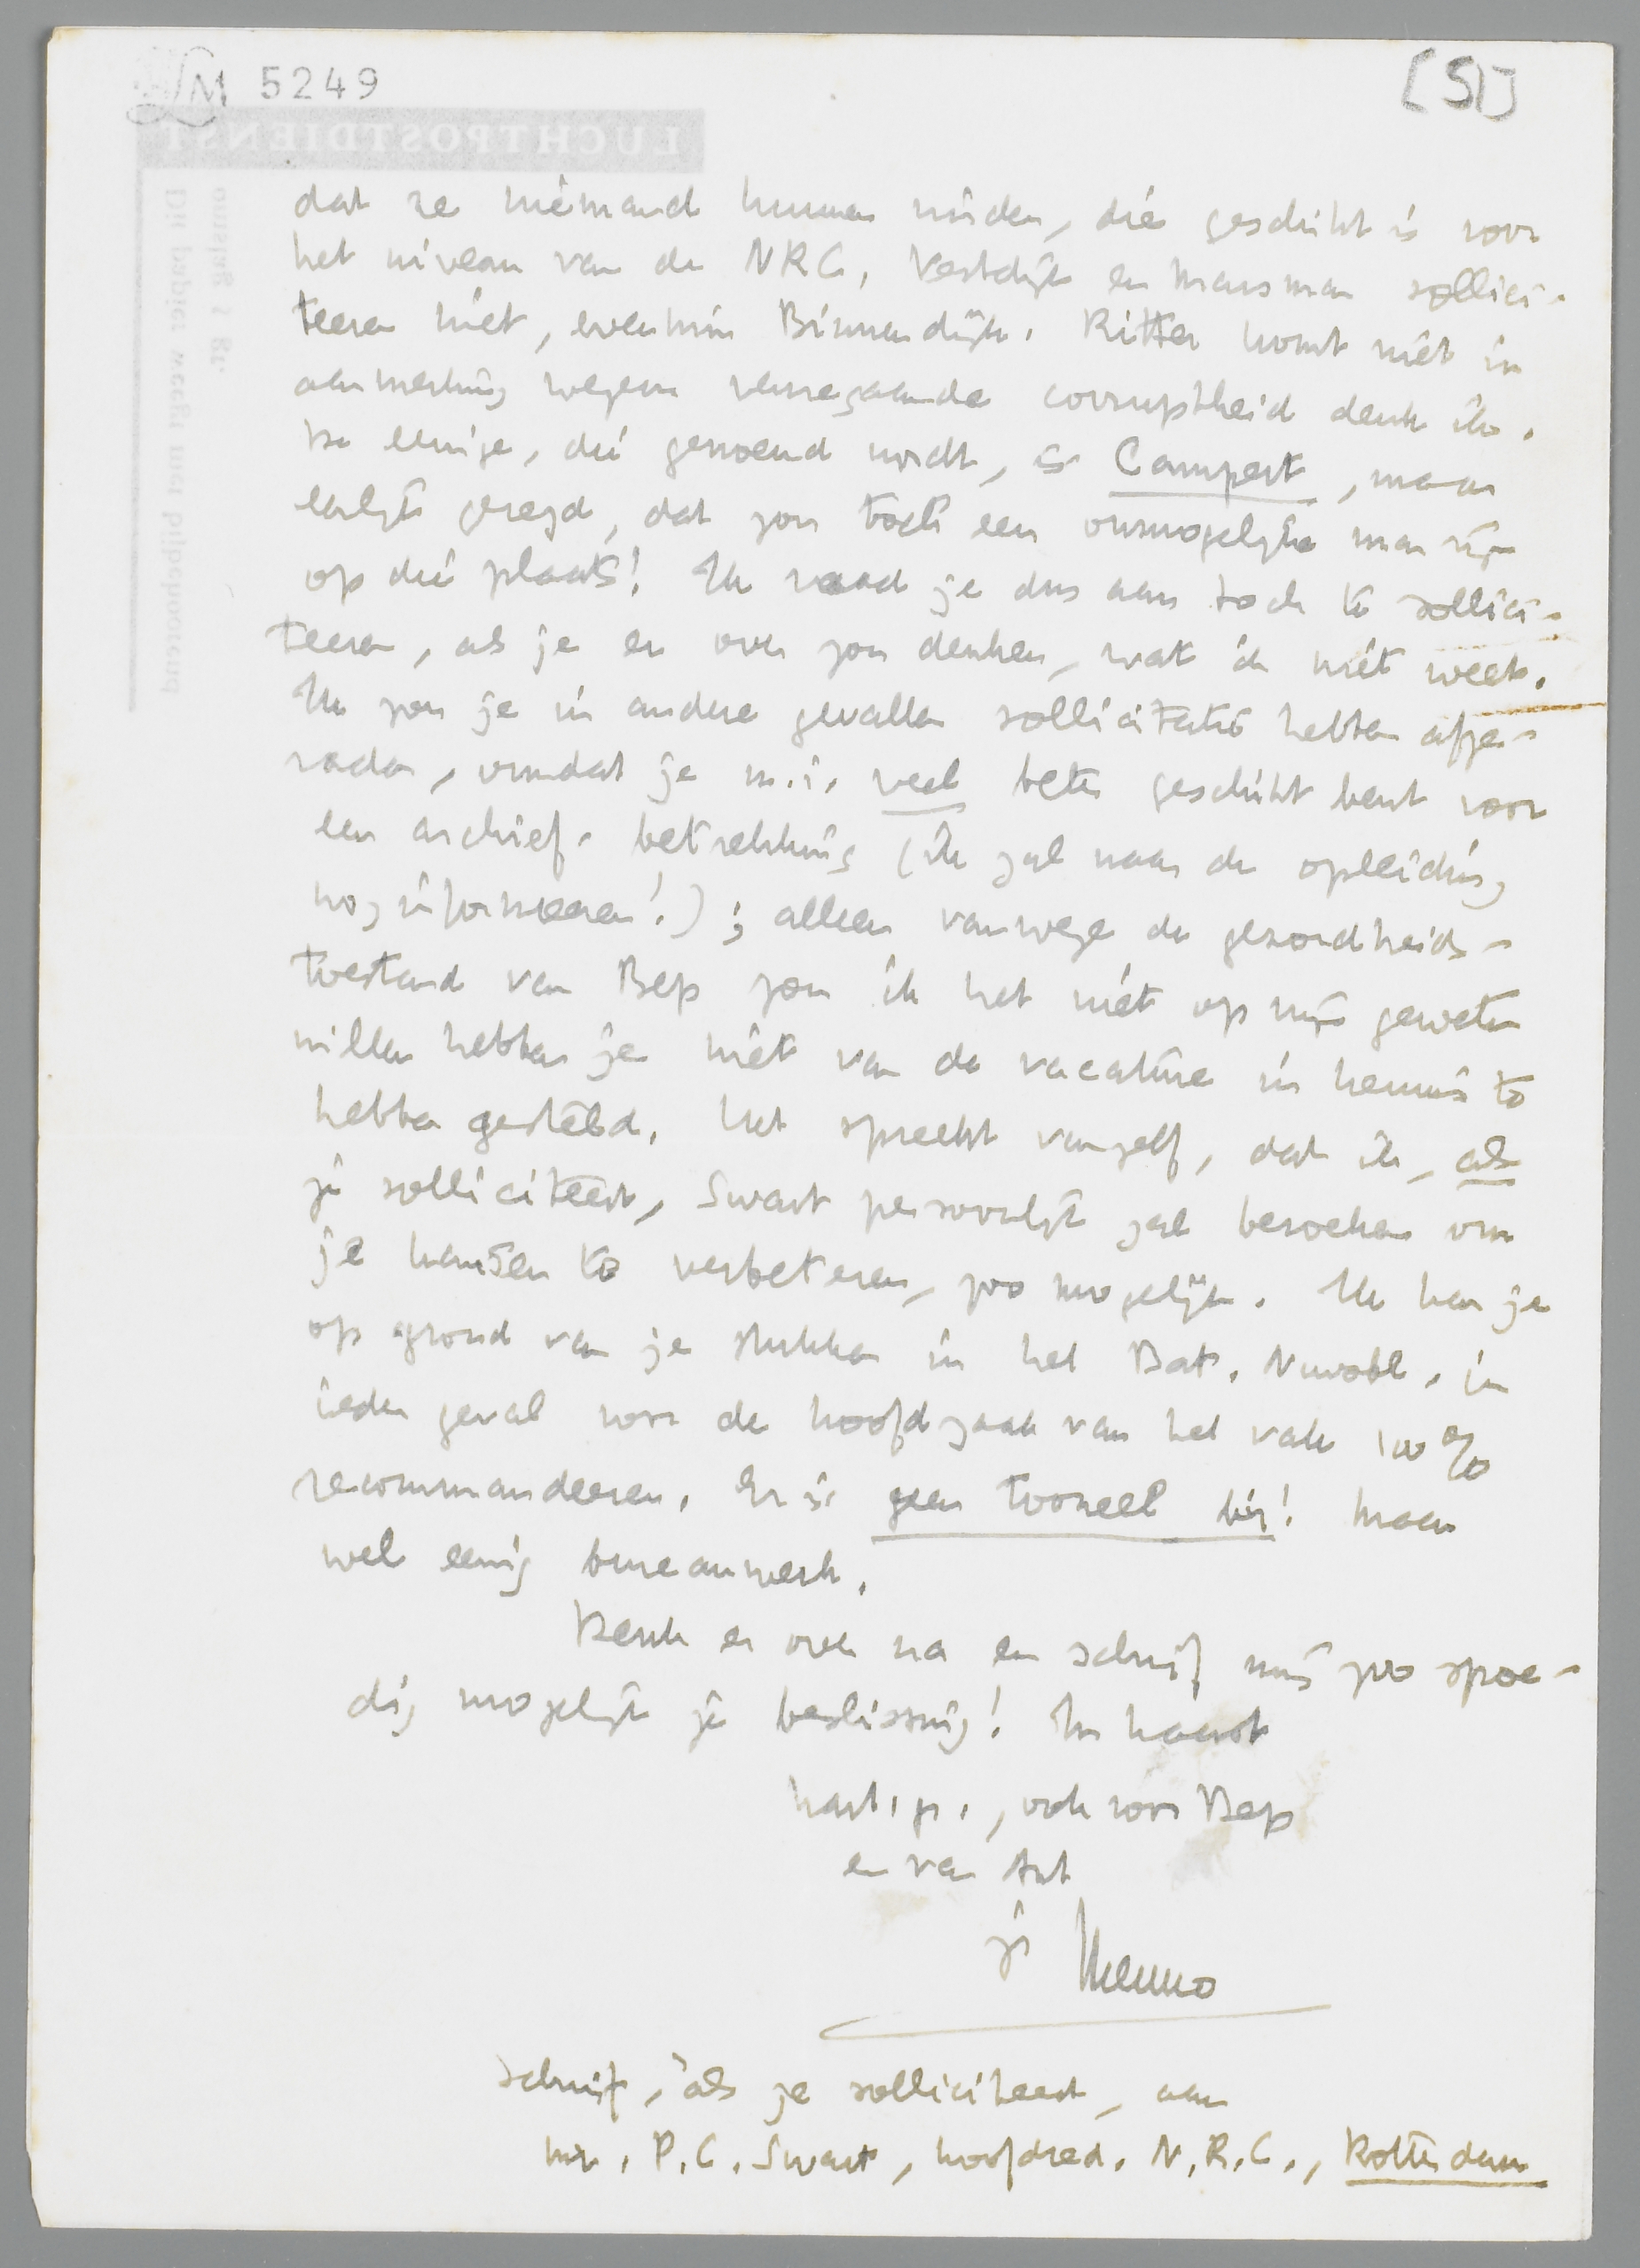 LM 5249
[S1]
LUCHTPOSTDIENST
Dit papier weegt met
ongeveer 5 gr.
dat ze niemand kunnen vinden, die geschikt is voor
het niveau van de NRC. Vestdijk en Marsman sollici-
teeren niet, evenmin Binnendijk. Ritter komt niet in
aanmerking wegens verregaande corruptheid denk ik.
De eenige, die genoemd wordt, is Campert, maar
eerlijk gezegd, dat zou toch een onmogelijke man zijn
op die plaats! Ik raad je dus aan toch te sollici-
teeren, als je er over zou denken, wat ik niet weet.
Ik zou je in andere gevallen sollicitatie hebben afge-
raden, omdat je m.i. veel beter geschikt bent voor
een archief-betrekking (ik zal naar de opleiding
nog informeeren!); alleen vanwege de gezondheids-
toestand van Bep zou ik het niet op mijn geweten
willen hebben je niet van de vacature in kennis te
hebben gesteld. Het spreekt vanzelf, dat ik, als
je solliciteert, Swart persoonlijk zal bezoeken om
je kansen te verbeteren, zoo mogelijk. Ik kan je
op grond van je stukken in het Bat. Nwsbl. in
ieder geval voor de hoofdzaak van het vak 100%
recommandeeren. Er is geen tooneel bij! Maar
wel eenig bureauwerk.
Denk er over na en schrijf mij zoo spoe-
dig mogelijk je beslissing! In haast
hart. gr., ook voor Bep
en van Ant
je Menno
Schrijf, als je solliciteert, aan
Mr. P.C. Swart, hoofdred. N.R.C., Rotterdam